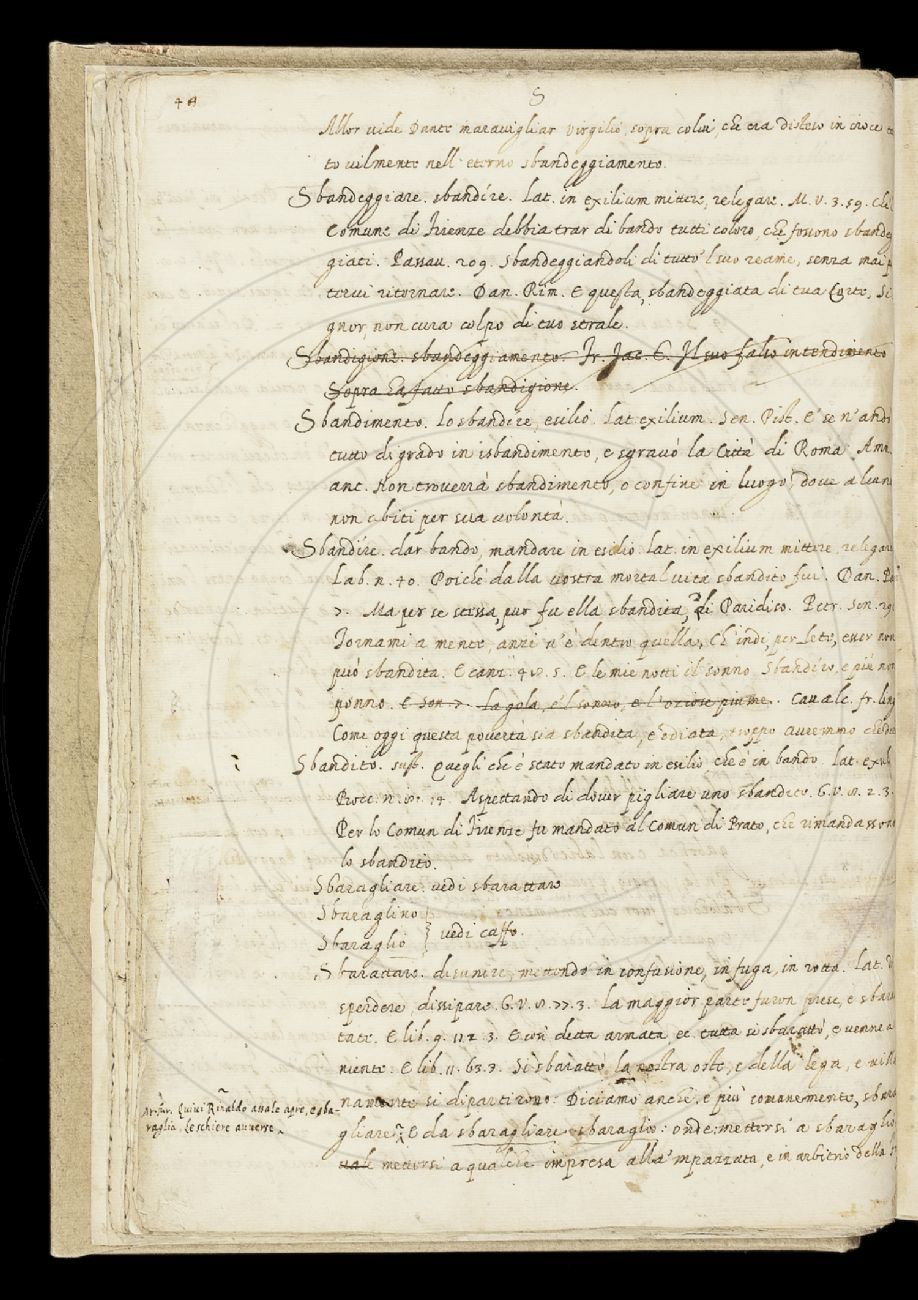 S
Allor vide Dante maravigliar Virgilio, sopra colui, che era disteso in croce
to vilmente nell' eterno sbandeggiamento.
Sbandeggiare. sbandire. Lat. in exilium mittere, relegare. M. V. 3. 59. Che l
Comune di Firenze debbia trar di bando tutti coloro, che fossono sbandeg
giati. Passav. 209. Sbandeggiandoli di tutto 'l suo reame, senza mai p
tervi ritornare. Dan. Rim. E questa sbandeggiata di tua Corte, Si
gnor, non cura colpo di tuo strale.
Sbandigione. sbandeggiamento. Fr. Jac. T. Il suo falso intendimento
Sopra la fatto sbandigione.
Sbandimento. lo sbandire, esilio. Lat. exilium. Sen. Pist. E' se n' andò
tutto di grado in isbandimento, e sgravò la Città di Roma. Amm.
ant. Non troverrà sbandimento, o confine in luogo, dove alcun
non abiti per sua volontà.
Sbandire. dar bando, mandare in esilio. Lat. in exilium mittere, relegare
Lab. n. 40. Poichè dalla vostra mortal vita sbandito fui. Dan. Par
7. Ma per se stessa, pur fu ella sbandita, Di Paridiso. Petr. Son. 29
Tornami a mente, anzi v' è dentro quella, Ch' indi, per Lete, esser non
può sbandita. E canz. 48. 5. E le mie notti il sonno Sbandiro, e più non
ponno. E son. 7. La gola, e 'l sonno, e l' oziose piume. Cavalc. fr. ling
Come oggi questa povertà sia sbandita, e odiata, troppo avremmo che dire
Sbandito. sust. Quegli che è stato mandato in esilio, che è in bando. Lat. exul
Bocc. n. 8. 14. Aspettando di dover pigliare uno sbandito. G. V. 8. 2. 3.
Per lo Comun di Firenze fu mandato al Comun di Prato, che rimandassono
lo sbandito.
Sbaragliare. vedi sbarattare
Sbaraglino
Sbaraglio } vedi caffo.
Sbarattare. disunire, mettendo in confusione, in fuga, in rotta. Lat. D
sperdere, dissipare. G. V. 8. 77. 3. La maggior parte furon presi, e sbarat
tati. E lib. 9. 112. 3. E così detta armata, ec. tutta si sbarattò, e venne a
niente. E lib. 11. 63. 7. Si sbarattò la nostra oste, e della lega, e vill
namente si dipartirono. Diciamo anche, e più comunemente, sbara
gliare. E da sbaragliare sbaraglio: onde mettersi a sbaraglio
vale mettersi a qualche impresa alla 'mpazzata, e in arbitrio della
Ar. fur. Quivi Rinaldo assale, apre, e sba-
raglia. Le schiere avverse.